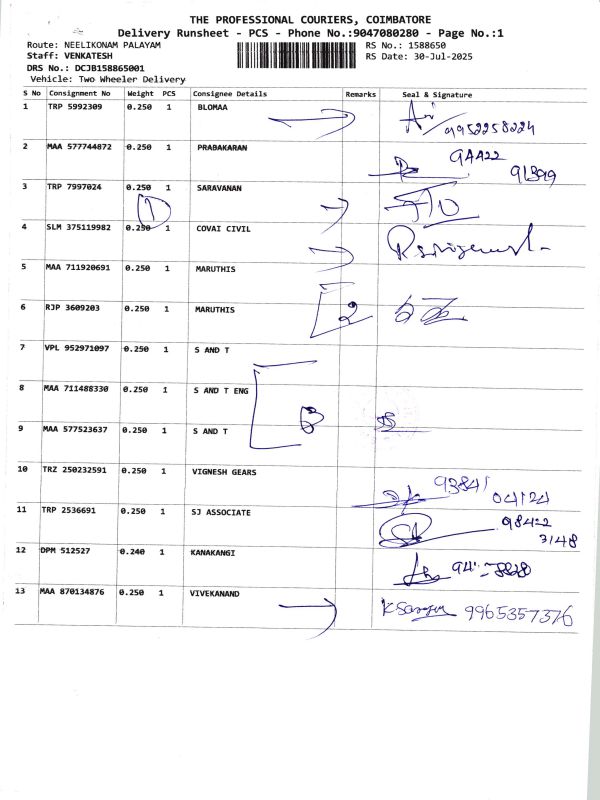 THE PROFESSIONAL COURIERS, COIMBATORE
Delivery Runsheet - PCS - Phone No.:9047080280 - Page No.:1
Route: NEELIKONAM PALAYAM RS No.: 1588650
Staff: VENKATESH RS Date: 30-Jul-2025
DRS No.: DCJB158865001
Vehicle: Two Wheeler Delivery
S No Consignment No Weight PCS Consignee Details Remarks Seal & Signature
1 TRP 5992309 0.250 1 BLOMAA
9952258224
2 MAA 577744872 0.250 1 PRABAKARAN
94422
91399
3 TRP 7997024 0.250 1 SARAVANAN
1
4 SLM 375119982 0.250 1 COVAI CIVIL
5 MAA 711920691 0.250 1 MARUTHIS
6 RJP 3609203 0.250 1 MARUTHIS 2
7 VPL 952971097 0.250 1 S AND T
8 MAA 711488330 0.250 1 S AND T ENG
3
9 MAA 577523637 0.250 1 S AND T
10 TRZ 250232591 0.250 1 VIGNESH GEARS
93841
04124
11 TRP 2536691 0.250 1 SJ ASSOCIATE
98422
3148
12 DPM 512527 0.240 1 KANAKANGI
13 MAA 870134876 0.250 1 VIVEKANAND
9965357376